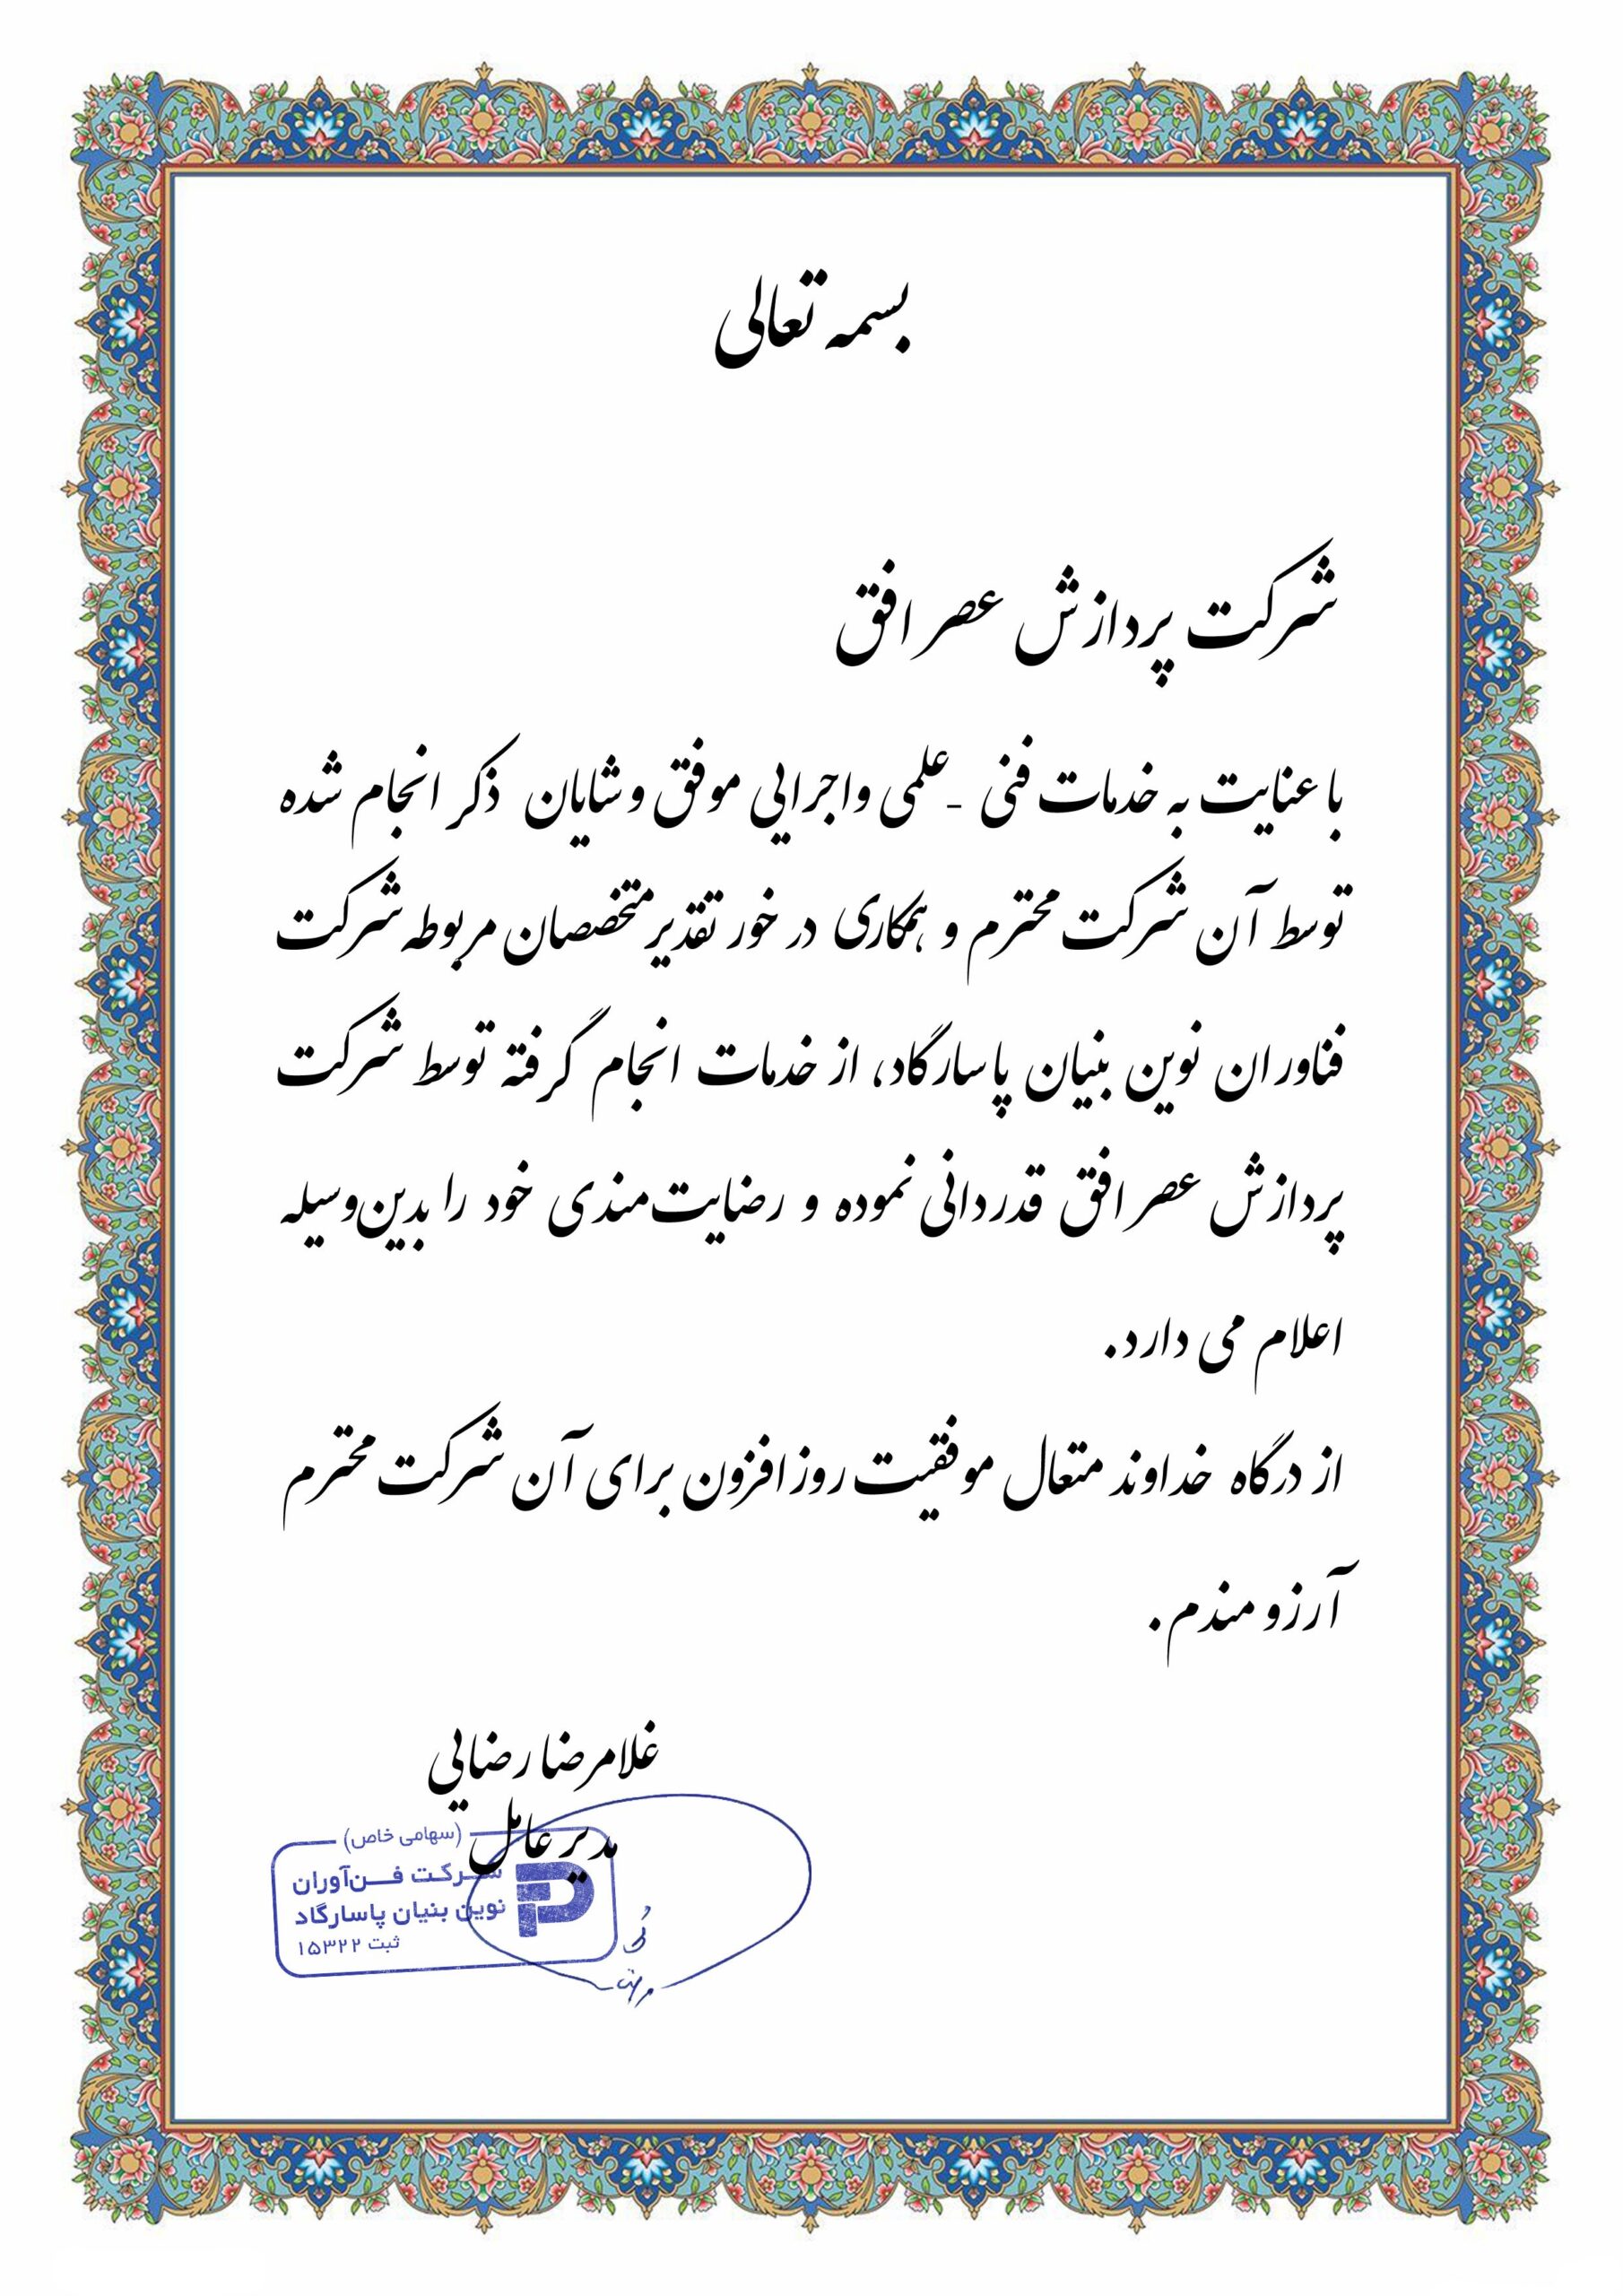 بسمه تعالی
شرکت پردازش عصر افق
با عنایت به خدمات فنی - علمی و اجرایی موفق و شایان ذکر انجام شده
توسط آن شرکت محترم و همکاری در خور تقدیر متخصصان مربوطه شرکت
فناوران نوین بنیان پاسارگاد، از خدمات انجام گرفته توسط شرکت
پردازش عصر افق قدردانی نموده و رضایت‌مندی خود را بدین‌وسیله
اعلام می دارد.
از درگاه خداوند متعال موفقیت روز افزون برای آن شرکت محترم
آرزومندم.
غلامرضا رضایی
مدیر عامل
(سهامی خاص)
شرکت فن‌آوران
نوین بنیان پاسارگاد
ثبت ۱۵۳۲۲